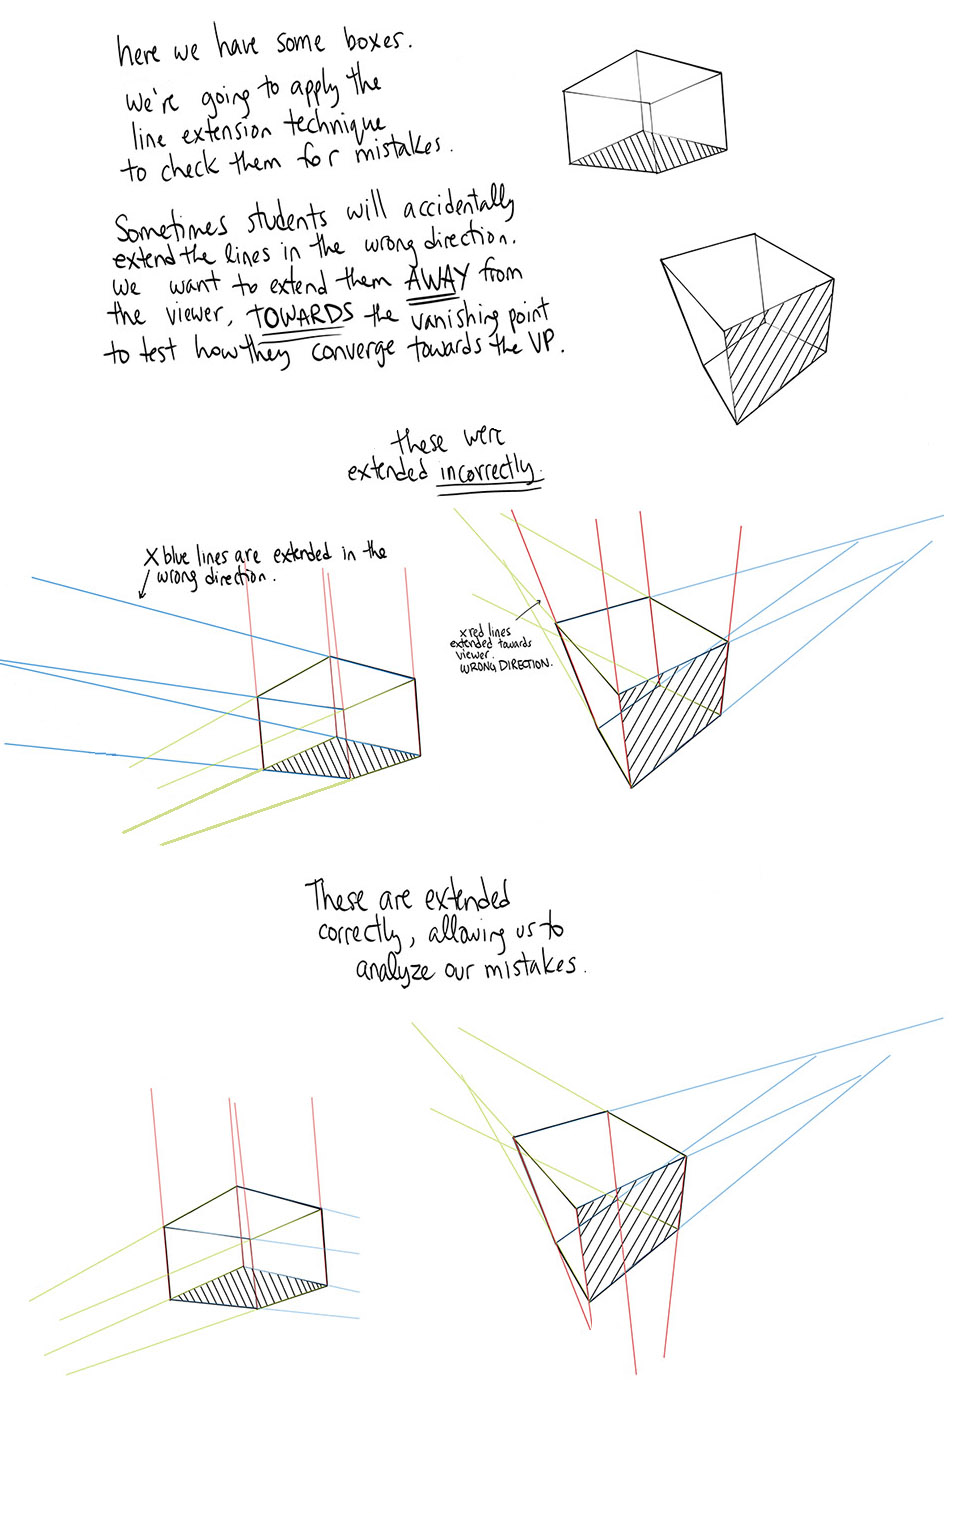 here we have some boxes.
We're going to apply the
line extension technique
to check them for mistakes.
Sometimes students will accidentally
extend the lines in the wrong direction.
we want to extend them AWAY from
the viewer, TOWARDS the vanishing point
to test how they converge towards the VP.
these were
extended incorrectly.
X blue lines are extended in the
wrong direction.
x red lines
extended towards
viewer.
WRONG DIRECTION.
These are extended
correctly, allowing us to
analyze our mistakes.